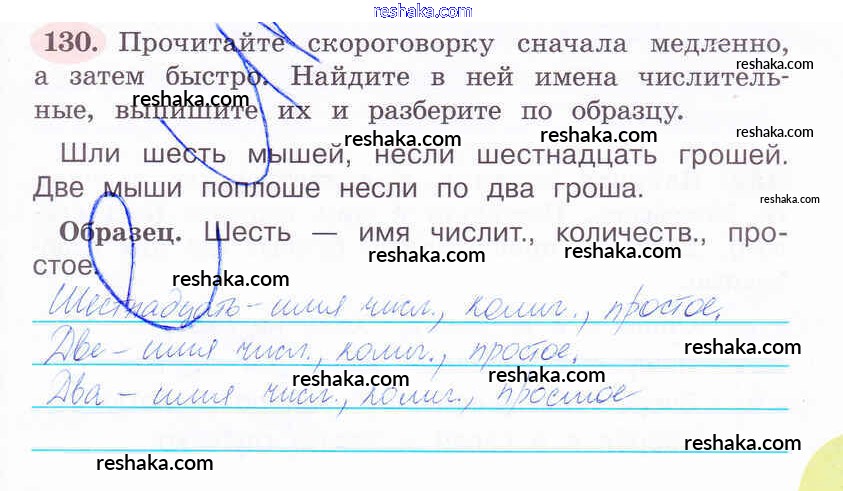 reshaka.com
130. Прочитайте скороговорку сначала медленно,
reshaka.com
а затем быстро. Найдите в ней имена числитель-
reshaka.com
ные, выпишите их и разберите по образцу.
reshaka.com
reshaka.com
reshaka.com
Шли шесть мышей, несли шестнадцать грошей.
Две мыши поплоше несли по два гроша.
reshaka.com
reshaka.com
Образец. Шесть — имя числит., количеств., про-
reshaka.com
стое.
reshaka.com
reshaka.com
Шестнадцать – имя числ., колич., простое.
Две – имя числ., колич., простое.
reshaka.com
reshaka.com
reshaka.com
Два – имя числ., колич., простое
reshaka.com
reshaka.com